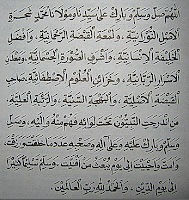 اللهم صل وسلم وبارك على سيدنا ومولانا محمد شجرة
الأصل النورانية ولمعة القبضة الرحمانية وأفضل
الخليقة الإنسانية وأشرف الصورة الجسمانية ومعدن
الأسرار الربانية وخزائن العلوم الاصطفائية صاحب
القبضة الأصلية والبهجة السنية والرتبة العلية
من اندرجت النبيون تحت لوائه فهم منه وإليه وصل
وسلم وبارك عليه وعلى آله وصحبه عدد ما خلقت ورزقت
وأمت وأحييت إلى يوم تبعث من أفنيت وسلم تسليما كثيرا
إلى يوم الدين والحمد لله رب العالمين